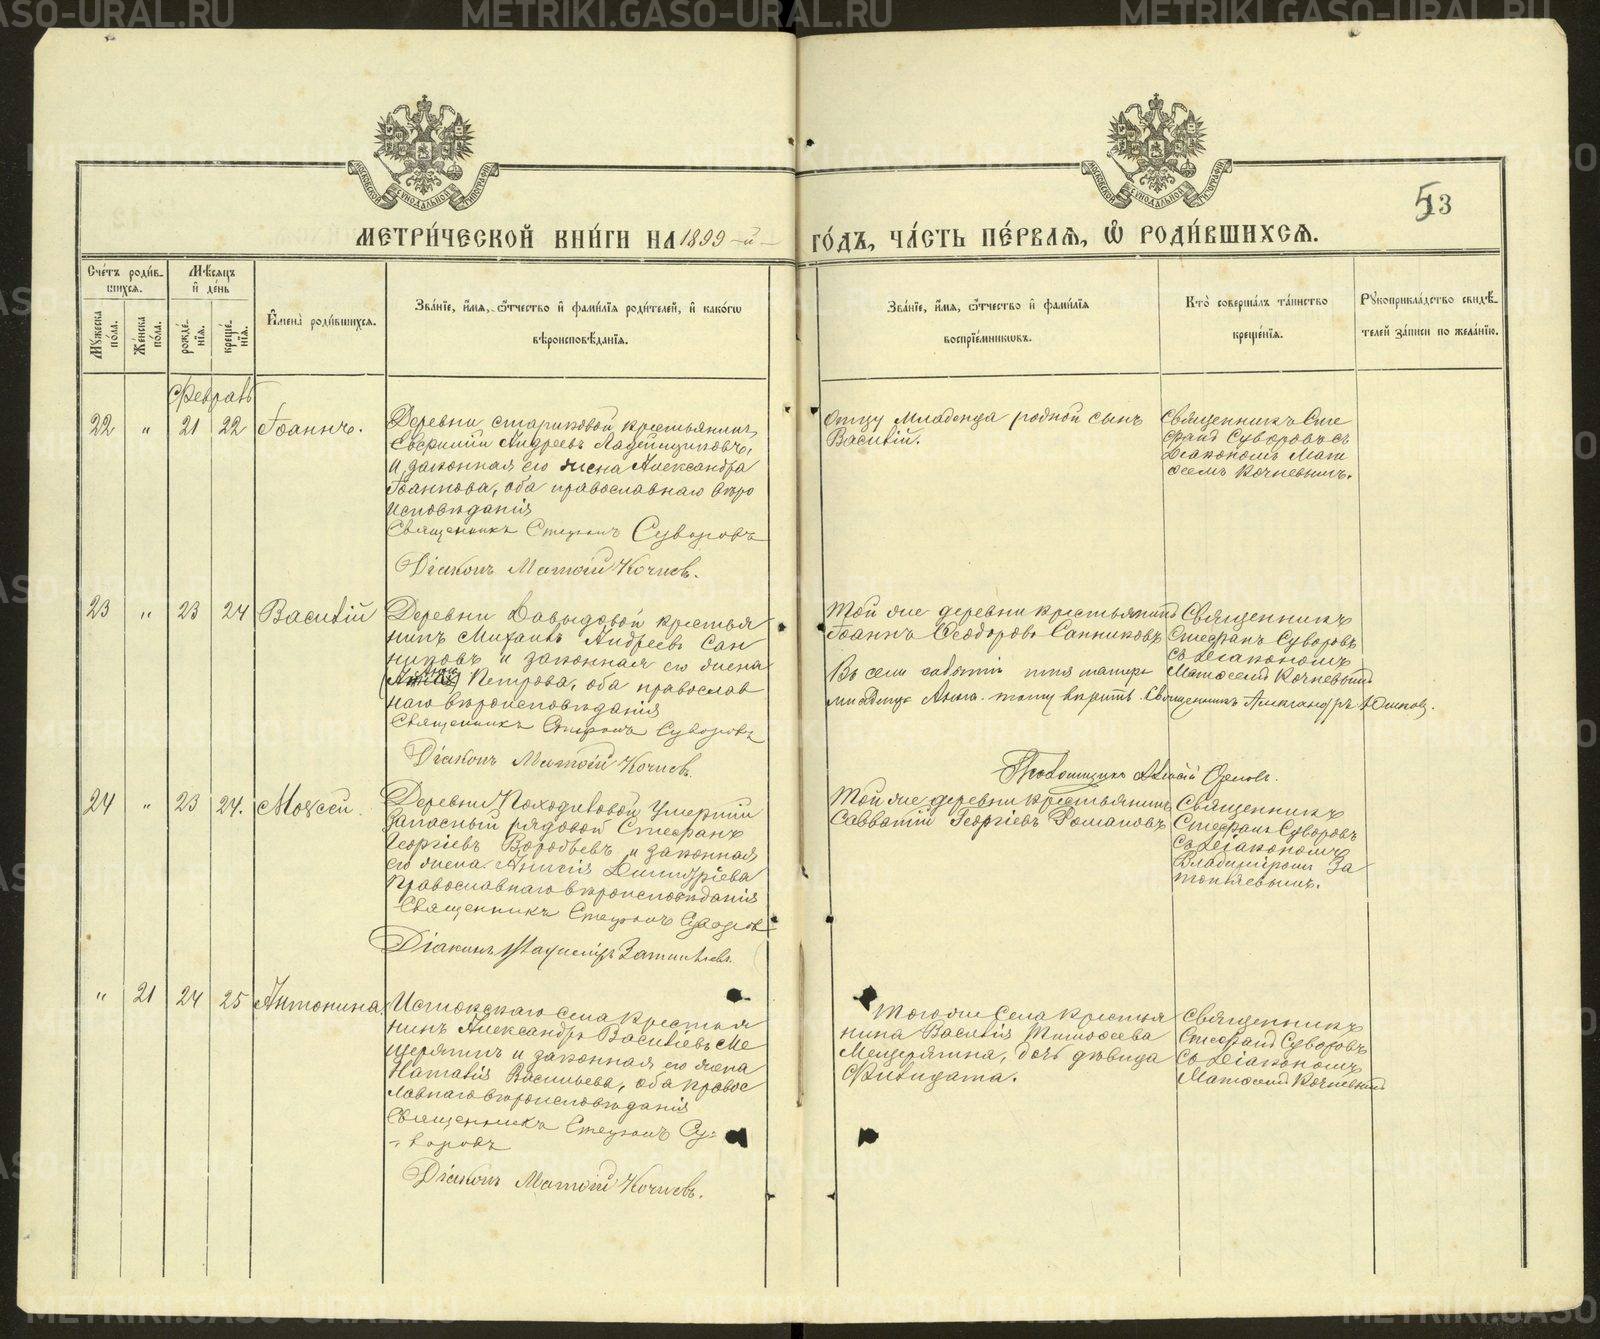 МЕТРИ́ЧЕСКОЙ КНИ́ГИ НА 1899-й
ГО́ДЪ, ЧА́СТЬ ПЕ́РВАѦ, Ѡ҆ РОДИ́ВШИХСѦ.
13
Сче́тъ роди́в-
шихсѧ.
Мꙋ́жеска по́ла.
Же́нска по́ла.
Мѣ́сѧцъ и҆ де́нь
рожде́-
нїѧ.
креще́-
нїѧ.
И҆мена̀ роди́вшихсѧ.
Зва́нїе, и҆́мѧ, ѻ҆́тчество и҆ фами́лїѧ роди́телей, и҆ како́гѡ
вѣроисповѣ́данїѧ.
Зва́нїе, и҆́мѧ, ѻ҆́тчество и҆ фами́лїѧ
воспрїе́мникѡвъ.
Кто̀ соверша́лъ та́инство
креще́нїѧ.
Рꙋкоприкла́дство свидѣ́-
телей за́писи по жела́нїю.
Февраль
22 " 21 22 Іоаннъ.
Деревни Стариковой крестьянинъ
Евфимій Андреевъ Ладейщиковъ,
и законная его жена Александра
Іоаннова, оба православнаго веро
исповѣданія
Священникъ Стефанъ Суворовъ
Діаконъ Матѳій Кочневъ.
Отцу младенца родной сынъ
Василій.
Священникъ Сте
фанъ Суворовъ съ
Діакономъ Мат
ѳеемъ Кочневымъ.
23 " 23 24 Василій
Деревни Давыдовой крестья
нинъ Михаилъ Андреевъ Сан
никовъ и законная его жена
Петрова, оба православ
наго вѣроисповѣданія
Священникъ Стефанъ Суворовъ
Діаконъ Матѳій Кочневъ.
Той же деревни крестьянинъ
Іоаннъ Ѳеодоровъ Санниковъ
Священникъ
Стефанъ Суворовъ
съ Діакономъ
Матѳеемъ Кочневымъ
Въ сей имя матери
младенца Анна. Священникъ Александръ Юшковъ.
Псаломщикъ Алексій Орловъ.
24 " 23 24. Моѵсей
Деревни Походиловой Умершій
запасный рядовой Стефанъ
Георгіевъ Воробьевъ и законная
его жена Анисія Димитріева
Православнаго вѣроисповѣданія
Священникъ Стефанъ Суворовъ
Діаконъ Владиміръ Затопляевъ.
Той же деревни крестьянинъ
Савватій Георгіевъ Романовъ
Священникъ
Стефанъ Суворовъ
съ Діакономъ
Владиміромъ За
топляевымъ.
" 21 24 25 Антонина
Истокскаго села крестья
нинъ Александръ Василіевъ Ме
щерягинъ и законная его жена
Наталія Васильева, оба правос
лавнаго вѣроисповѣданія
Священникъ Стефанъ Су-
воровъ
Діаконъ Матѳій Кочневъ.
Того же села крестья
нина Василія Тимоѳеева
Мещерягина, дочь дѣвица
Филицата.
Священникъ
Стефанъ Суворовъ
съ Діакономъ
Матѳеемъ Кочневымъ
METRIKI.GASO-URAL.RU